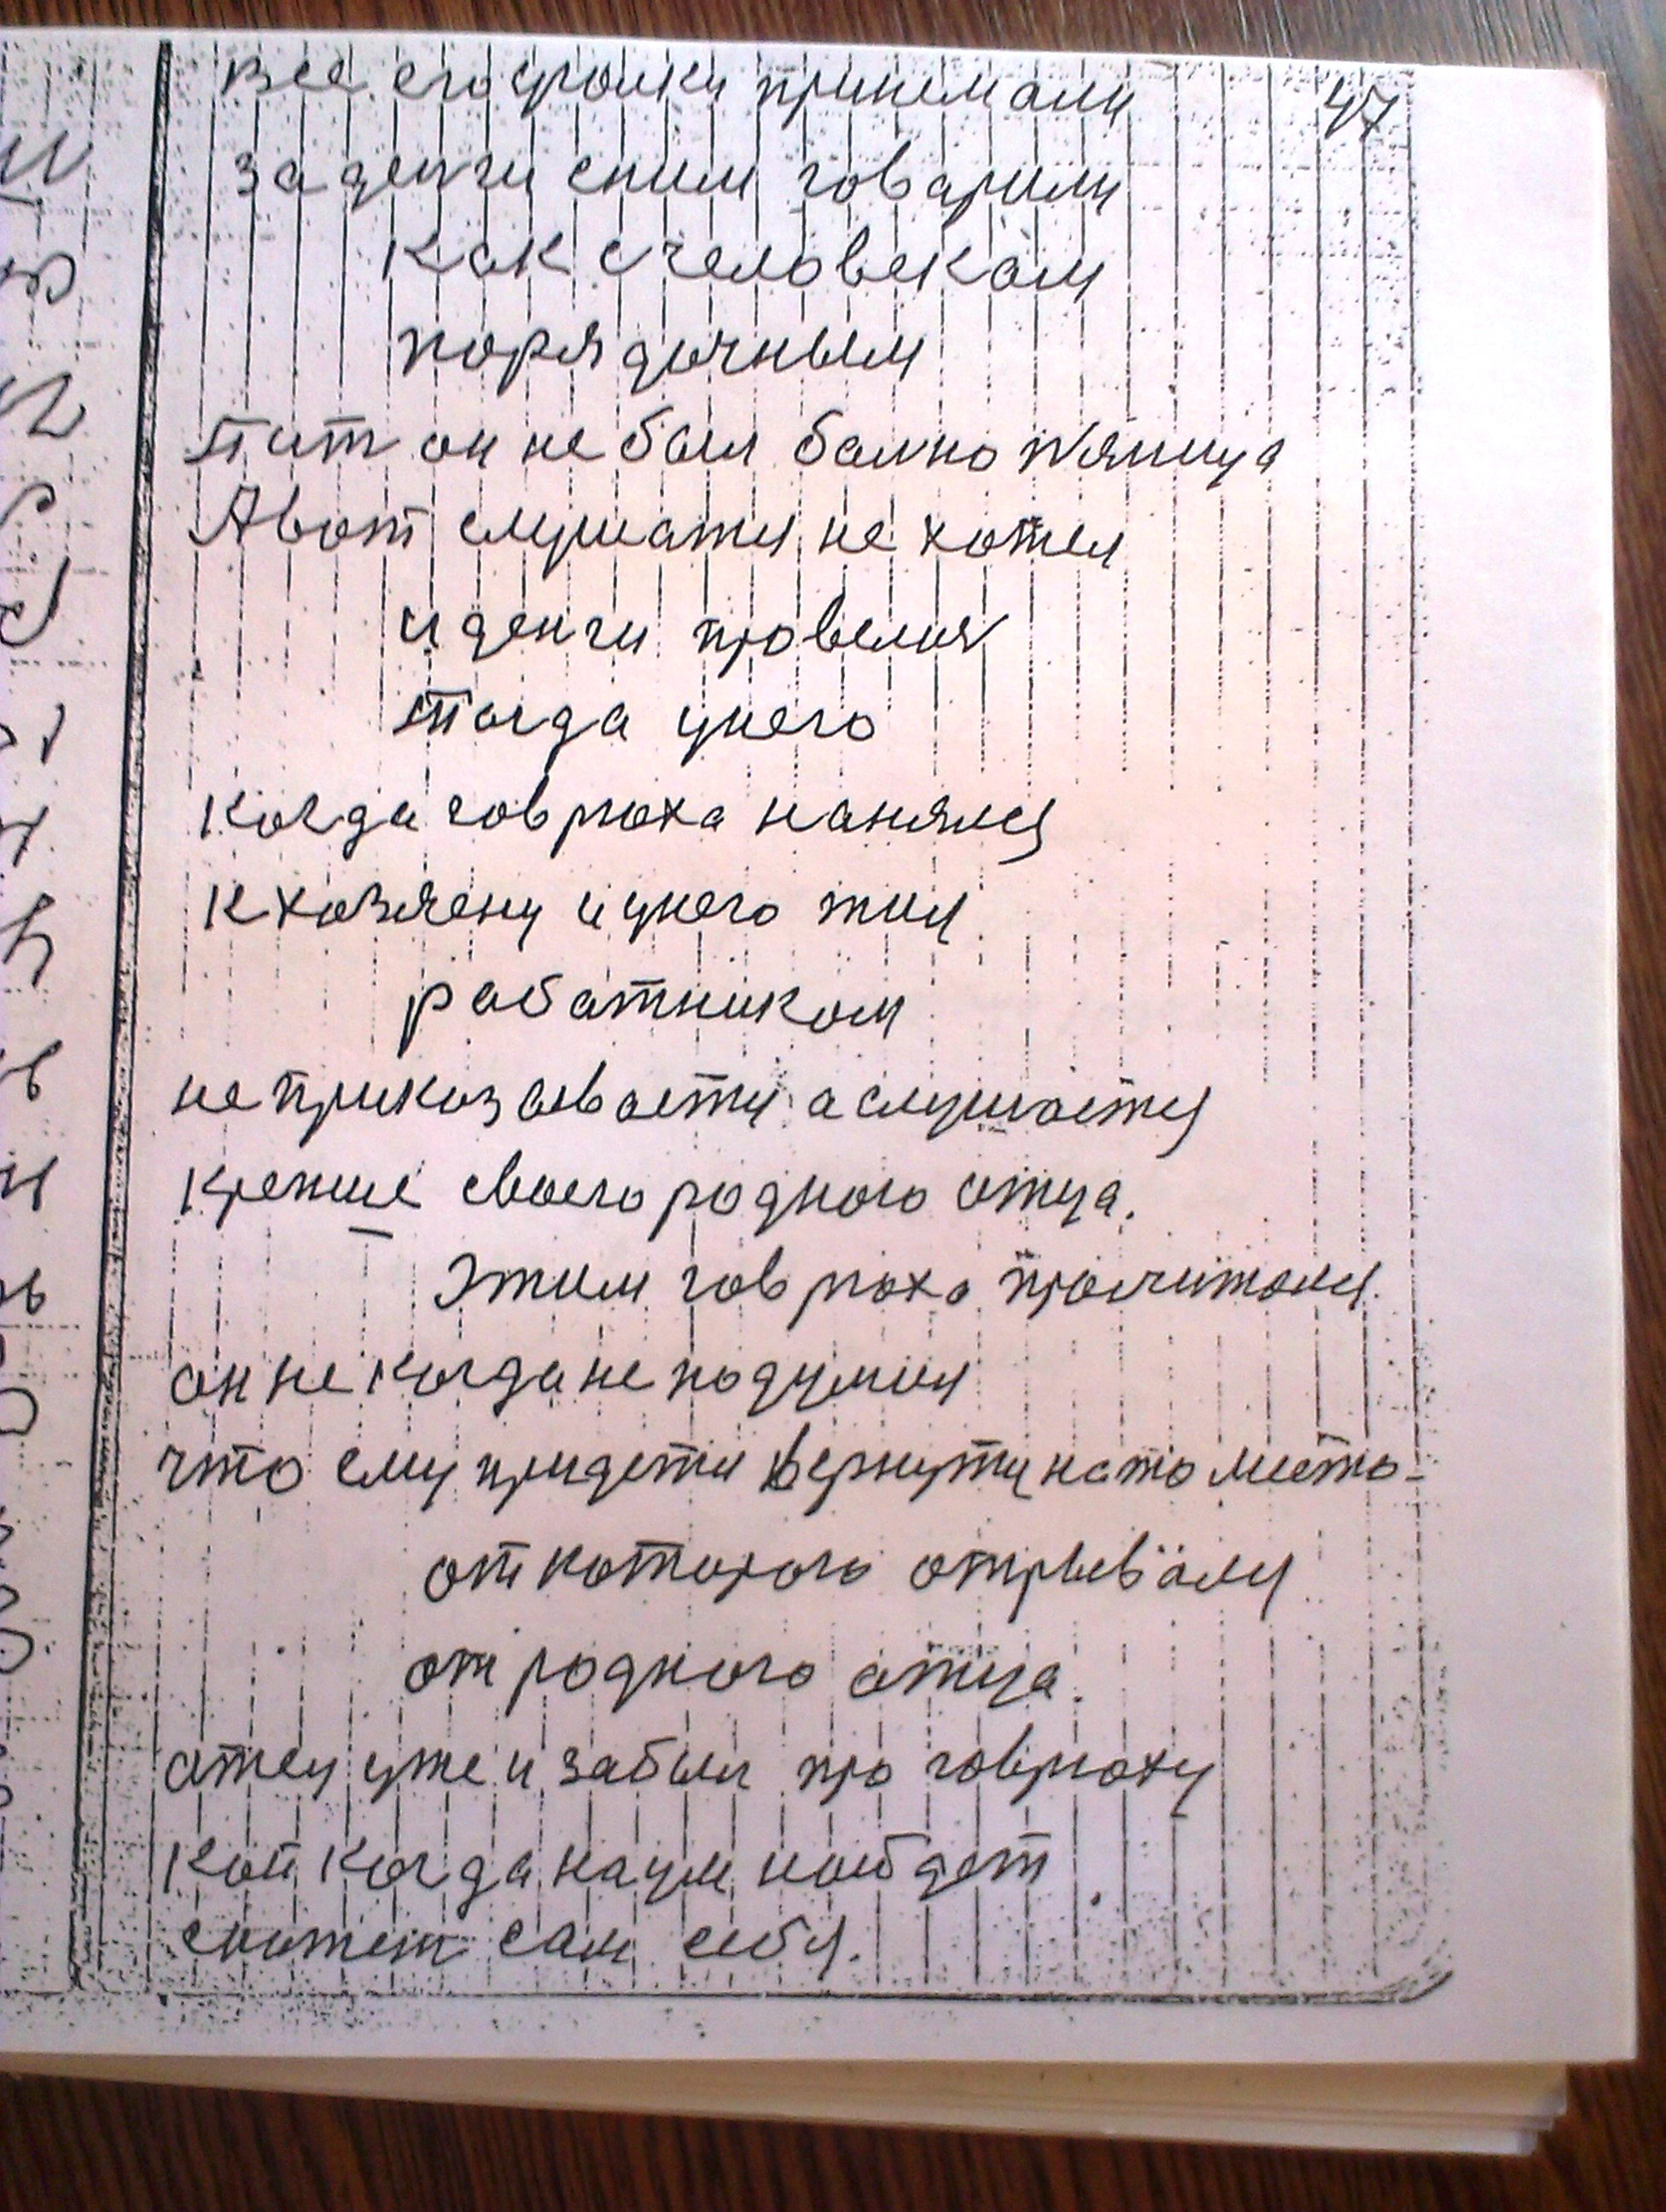 47
все его уроики принемали
за денги сним говарили
как с человекам
порядочным
Пит он не был бално пяница
А вот слушатя не хотел
и денги провелия
тогда унего
когда говрюха нанялся
к хозяену и унего жил
рабатником
не приказавает а слушается
крепше своего родного отца.
Этим говрюха прочитался
он не когда не подумал
что ему придетя вернутя на то место
от которого отрывалу
от родного отца.
отец уже и забыл про говрюху
кой когда на ум найдет
скажет сам себя.